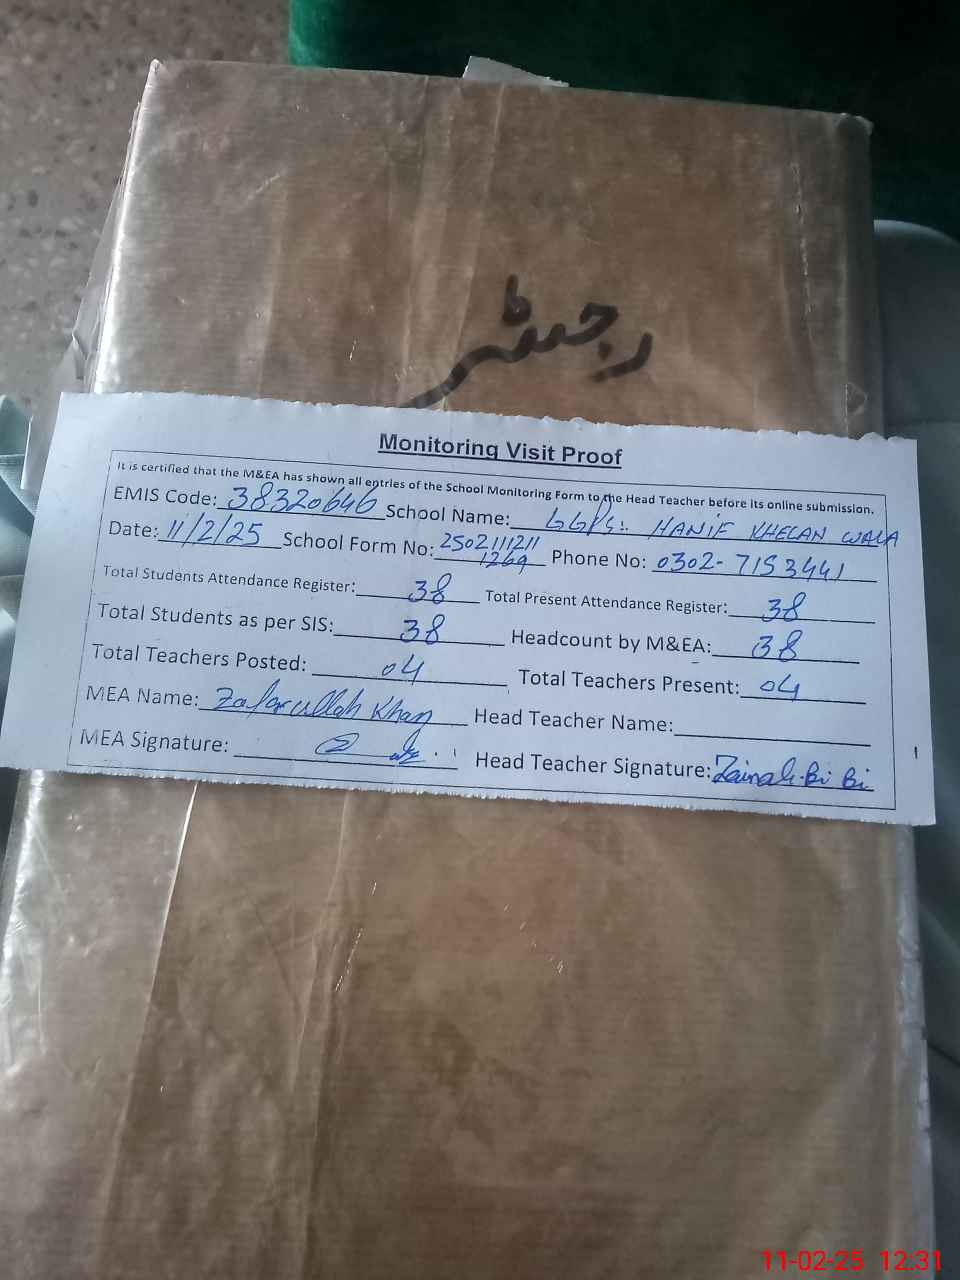 رجسٹر
Monitoring Visit Proof
It is certified that the M&EA has shown all entries of the School Monitoring Form to the Head Teacher before its online submission.
EMIS Code: 38320646 School Name: GGPS: HANIF KHELAN WALA
Date: 11/2/25 School Form No: 2502111211 1269 Phone No: 0302-7153441
Total Students Attendance Register: 38 Total Present Attendance Register: 38
Total Students as per SIS: 38 Headcount by M&EA: 38
Total Teachers Posted: 04 Total Teachers Present: 04
MEA Name: Zafarullah Khan Head Teacher Name:
MEA Signature: Head Teacher Signature: Zainab Bi Bi
11-02-25 12:31